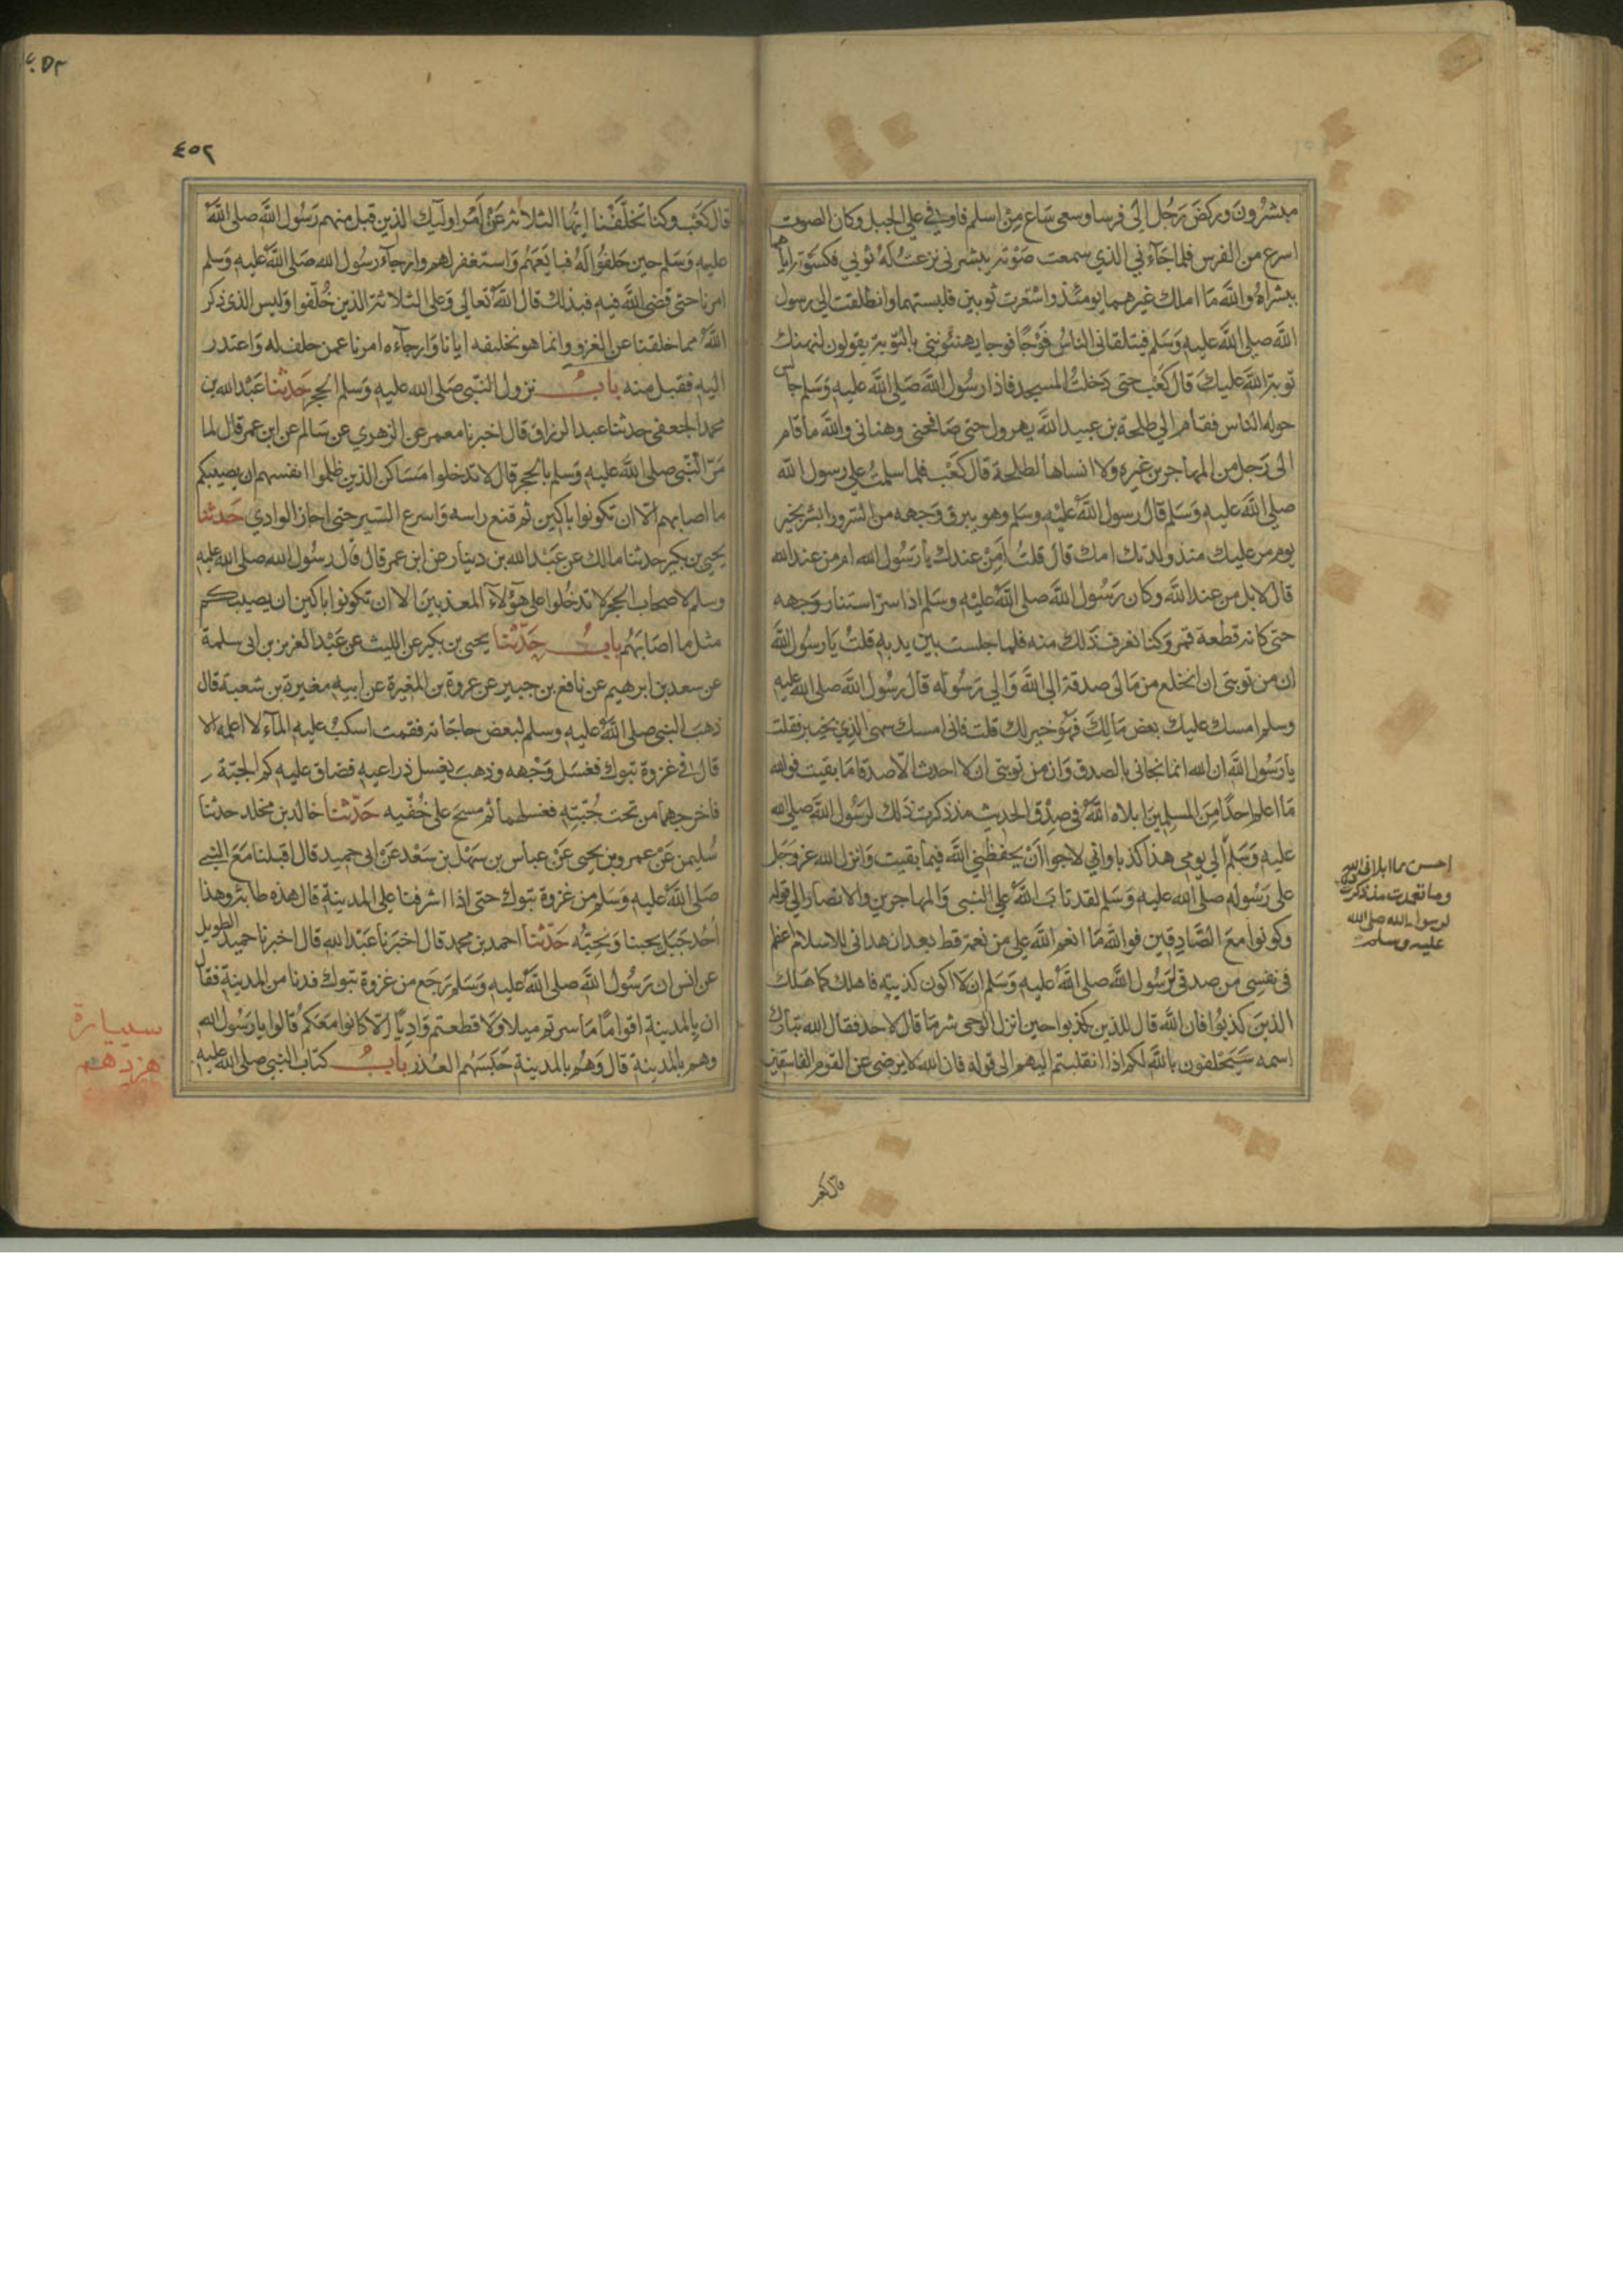 مبشرون وركض رجل الي فرسا وسعى ساع من اسلم فاوفي علي الجبل وكان الصوت
اسرع من الفرس فلما جآءني الذي سمعت صوته يبشرني نزعت له ثوبي فكسوته اياهما
ببشراه والله ما املك غيرهما يومئذ واستعرت ثوبين فلبستهما وانطلقت الي رسول
الله صلي الله عليه وسلم فيتلقاني الناس فوجا فوجا يهنئونني بالتوبة يقولون لتهنك
توبة الله عليك قال كعب حتى دخلت المسجد فاذا رسول الله صلي الله عليه وسلم جالس
حوله الناس فقام الي طلحة بن عبيد الله يهرول حتى صافحني وهناني والله ما قام
الى رجل من المهاجرين غيره ولا انساها لطلحة قال كعب فلما سلمت علي رسول الله
صلي الله عليه وسلم قال رسول الله عليه وسلم وهو يبرق وجهه من السرور ابشر بخير
يوم مر عليك منذ ولدتك امك قال قلت امن عندك يا رسول الله ام من عند الله
قال لا بل من عند الله وكان رسول الله صلى الله عليه وسلم اذا سر استنار وجهه
حتى كانه قطعة قمر وكنا نعرف ذلك منه فلما جلست بين يديه قلت يا رسول الله
ان من توبتي ان انخلع من مالى صدقة الي الله والي رسوله قال رسول الله صلى الله عليه
وسلم امسك عليك بعض مالك فهو خير لك قلت فاني امسك سهمي الذي بخيبر فقلت
يا رسول الله ان الله انما نجاني بالصدق وان من توبتي ان لا احدث الا صدقا ما بقيت فوالله
ما اعلم احدا من المسلمين ابلاه الله في صدق الحديث منذ ذكرت ذلك لرسول الله صلى الله
عليه وسلم الي يومي هذا كذبا واني لارجوا ان يحفظني الله فيما بقيت وانزل الله عز وجل
على رسوله صلى الله عليه وسلم لقد تاب الله علي النبي والمهاجرين والانصار الي قوله
وكونوا مع الصادقين فوالله ما انعم الله علي من نعمة قط بعد ان هداني للاسلام اعظم
في نفسي من صدقي لرسول الله صلى الله عليه وسلم ان لا اكون كذبته فاهلك كما هلك
الذين كذبوا فان الله قال للذين كذبوا حين انزل الوحي شر ما قال لاحد فقال الله تبارك
اسمه سيحلفون بالله لكم اذا انقلبتم اليهم الى قوله فان الله لا يرضى عن القوم الفاسقين
احسن مما ابلاني الله
وما تعمدت منذ ذكرت
لرسول الله صلى الله
عليه وسلم
٤٥٢
قال كعب وكنا تخلفنا ايها الثلاثة عن امر اوليك الذين قبل منهم رسول الله صلى الله
عليه وسلم حين حلفوا له فبايعهم واستغفر لهم وارجاء رسول الله صلى الله عليه وسلم
امرنا حتى قضى الله فيه فبذلك قال الله تعالي وعلى الثلاثة الذين خلفوا وليس الذي ذكر
الله مما خلفنا عن الغزو وانما هو تخليفه ايانا وارجآءه امرنا عمن حلف له واعتذر
اليه فقبل منه باب نزول النبي صلى الله عليه وسلم الحجر حدثنا عبد الله بن
محمد الجعفي حدثنا عبد الرزاق قال اخبرنا معمر عن الزهري عن سالم عن ابن عمر قال لما
مر النبي صلي الله عليه وسلم بالحجر قال لا تدخلوا مساكن الذين ظلموا انفسهم ان يصيبكم
ما اصابهم الا ان تكونوا باكين ثم قنع راسه واسرع السير حتى اجاز الوادي حدثنا
يحيى بن بكير حدثنا مالك عن عبد الله بن دينار عن ابن عمر قال قال رسول الله صلى الله عليه
وسلم لاصحاب الحجر لا تدخلوا على هؤلاء المعذبين الا ان تكونوا باكين ان يصيبكم
مثل ما اصابهم باب حدثنا يحيى بن بكير عن الليث عن عبد العزيز بن ابي سلمة
عن سعد بن ابرهيم عن نافع بن جبير عن عروة بن المغيرة عن ابيه مغيرة بن شعبة قال
ذهب النبي صلى الله عليه وسلم لبعض حاجاته فقمت اسكب عليه المآء لا اعلمه الا
قال في غزوة تبوك فغسل وجهه وذهب يغسل ذراعيه فضاق عليه كم الجبة
فاخرجهما من تحت جبته فغسلهما ثم مسح على خفيه حدثنا خالد بن مخلد حدثنا
سليمن عن عمرو بن يحيى عن عباس بن سهل بن سعد عن ابي حميد قال اقبلنا مع النبي
صلى الله عليه وسلم من غزوة تبوك حتى اذا اشرفنا علي المدينة قال هذه طابة وهذا
احد جبل يحبنا ونحبه حدثنا احمد بن محمد قال اخبرنا عبد الله قال اخبرنا حميد الطويل
عن انس ان رسول الله صلى الله عليه وسلم رجع من غزوة تبوك فدنا من المدينة فقال
ان بالمدينة اقواما ما سرتم ميلا ولا قطعتم واديا الا كانوا معكم قالوا يا رسول الله
وهم بالمدينة قال وهم بالمدينة حبسهم العذر باب كتاب النبي صلى الله عليه
سيپارة
هزدهم
قال كعب